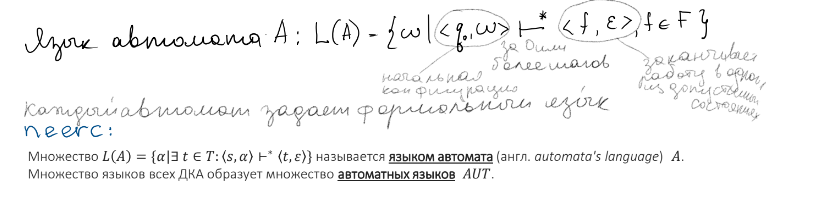 Язык автомата A: L(A) - {ω| <q₀,ω> ⊢* <f, ε>, f ∈ F}
начальная конфигурация
за 0 или более шагов
заканчивает работу в одном из допустимых состояниях
Каждый автомат задает формальный язык
neerc:
Множество L(A) = {α|∃ t ∈ T: ⟨s, α⟩ ⊢* ⟨t, ε⟩} называется языком автомата (англ. automata's language) A.
Множество языков всех ДКА образует множество автоматных языков AUT.